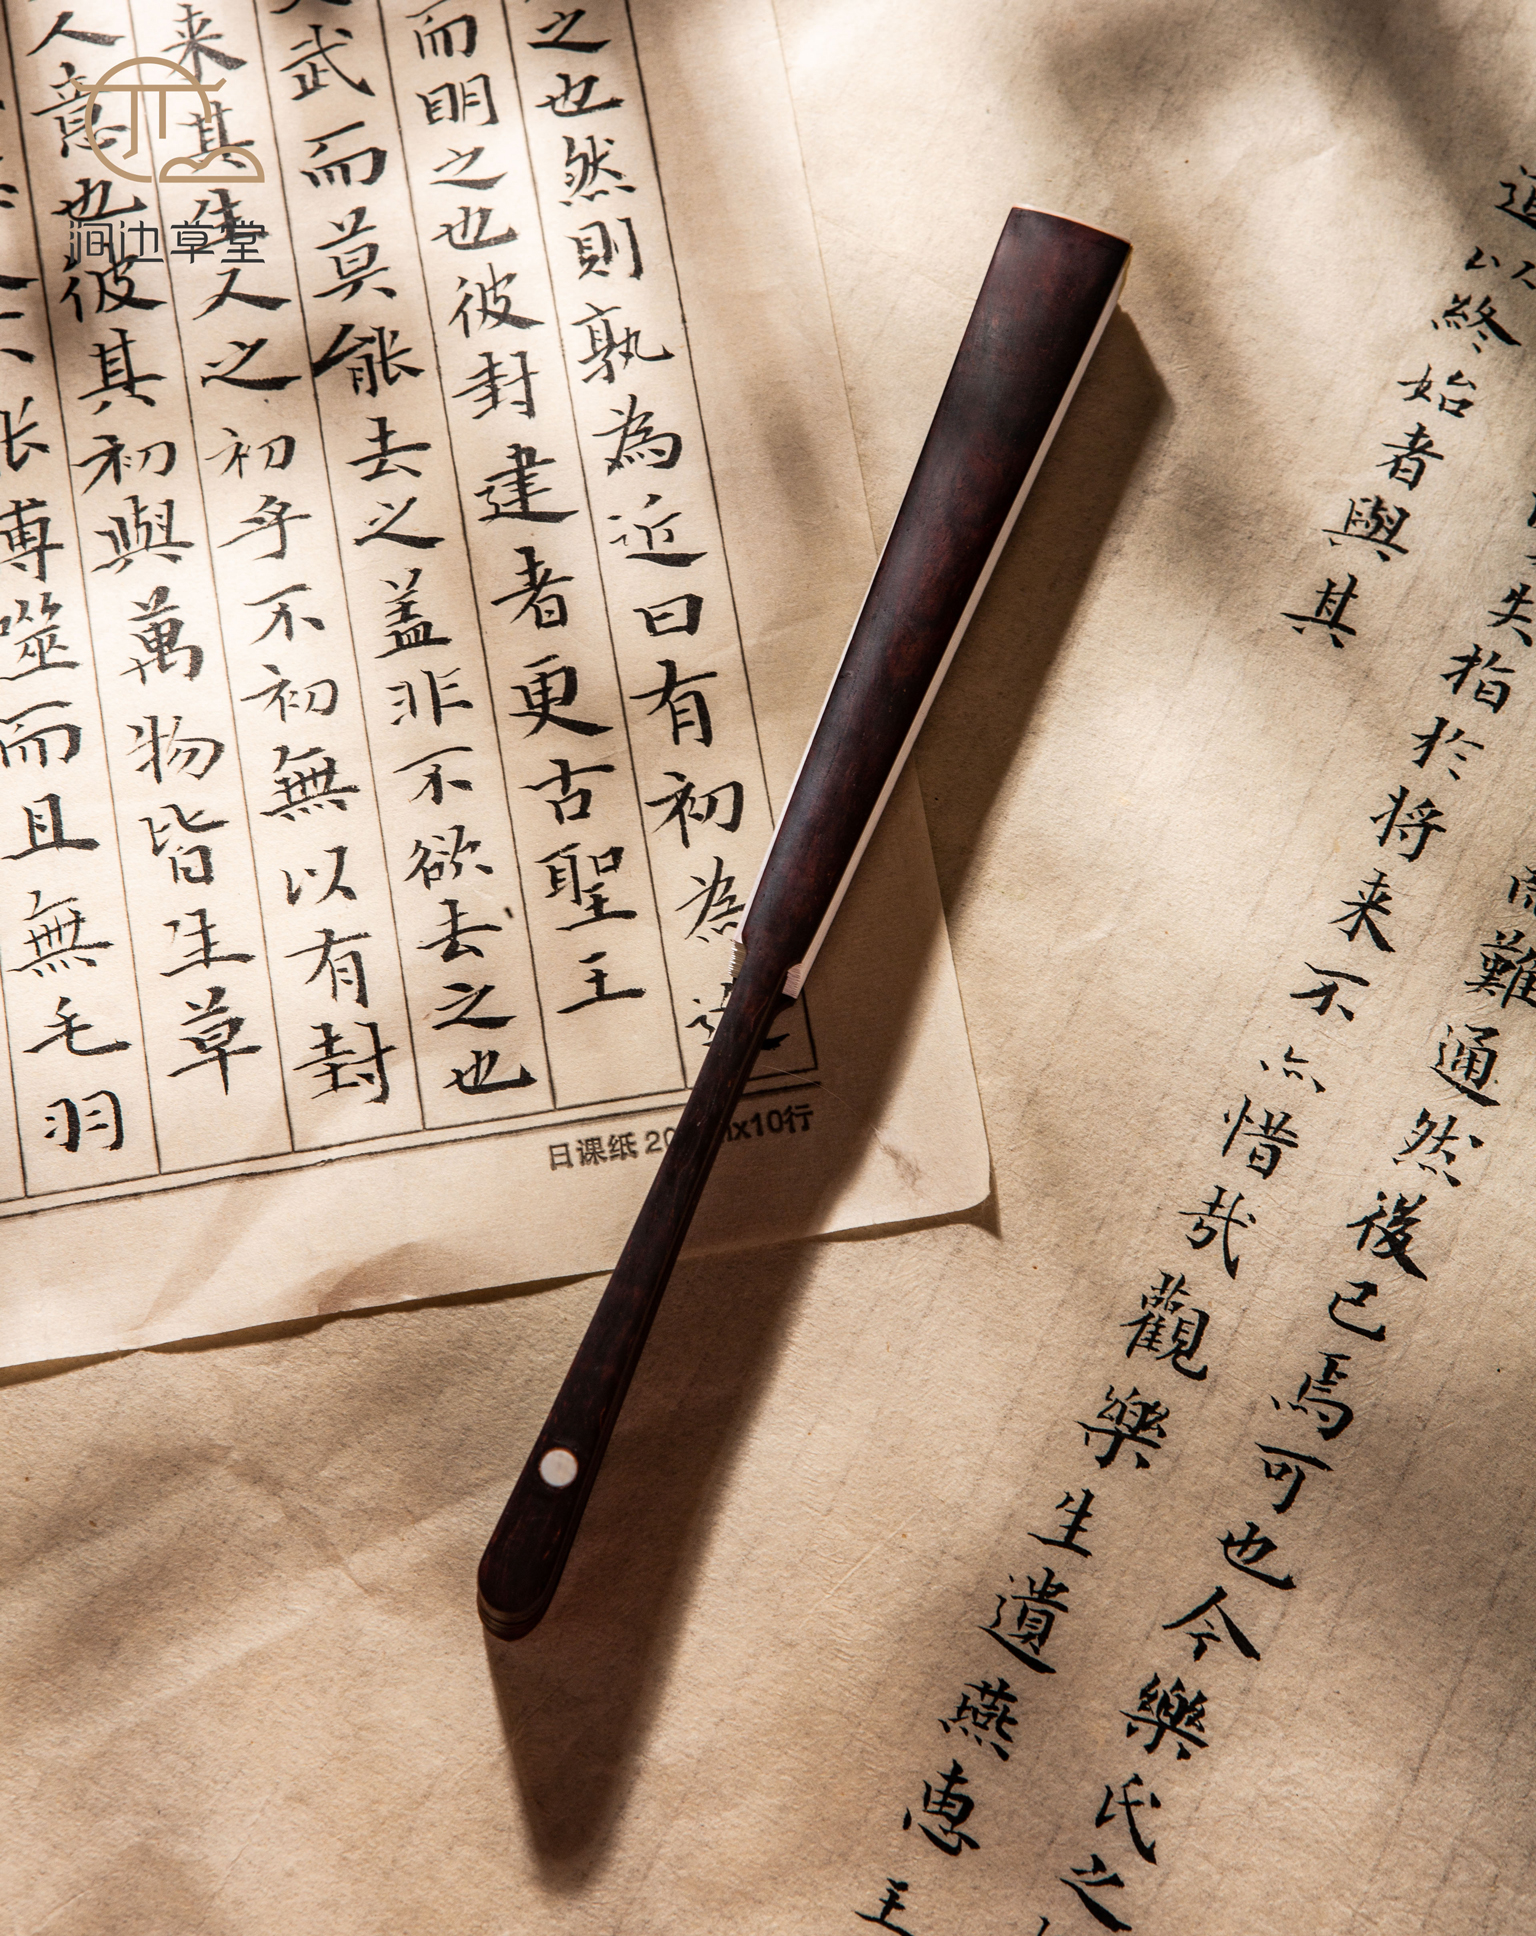 涧边草堂
之也然則孰為近曰有初為近
而明之也彼封建者更古聖王
武而莫能去之蓋非不欲去之也
来其生人之初乎不初無以有封
人意也彼其初與萬物皆生草
搏噬而且無毛羽
日课纸 20 x10行
難通然後已焉可也今樂氏之
失指於将来不亦惜哉觀樂生遺燕惠王
道以終始者與其